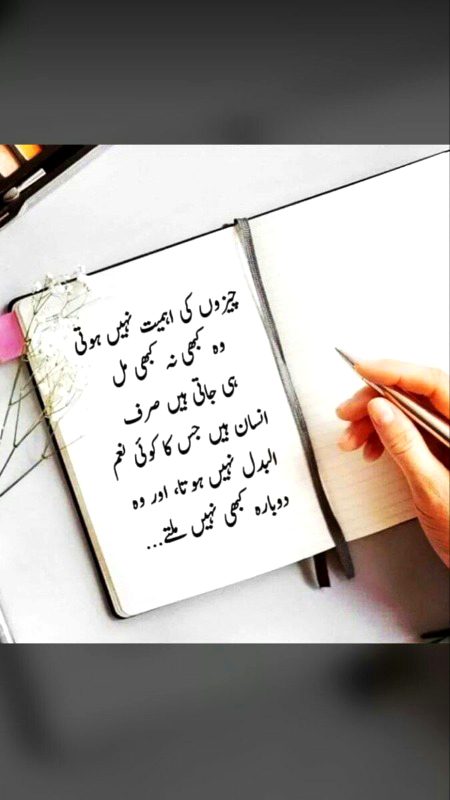 چیزوں کی اہمیت نہیں ہوتی
وہ کبھی نہ کبھی مل
ہی جاتی ہیں صرف
انسان ہیں جس کا کوئی نعم
البدل نہیں ہوتا، اور وہ
دوبارہ کبھی نہیں ملتے...